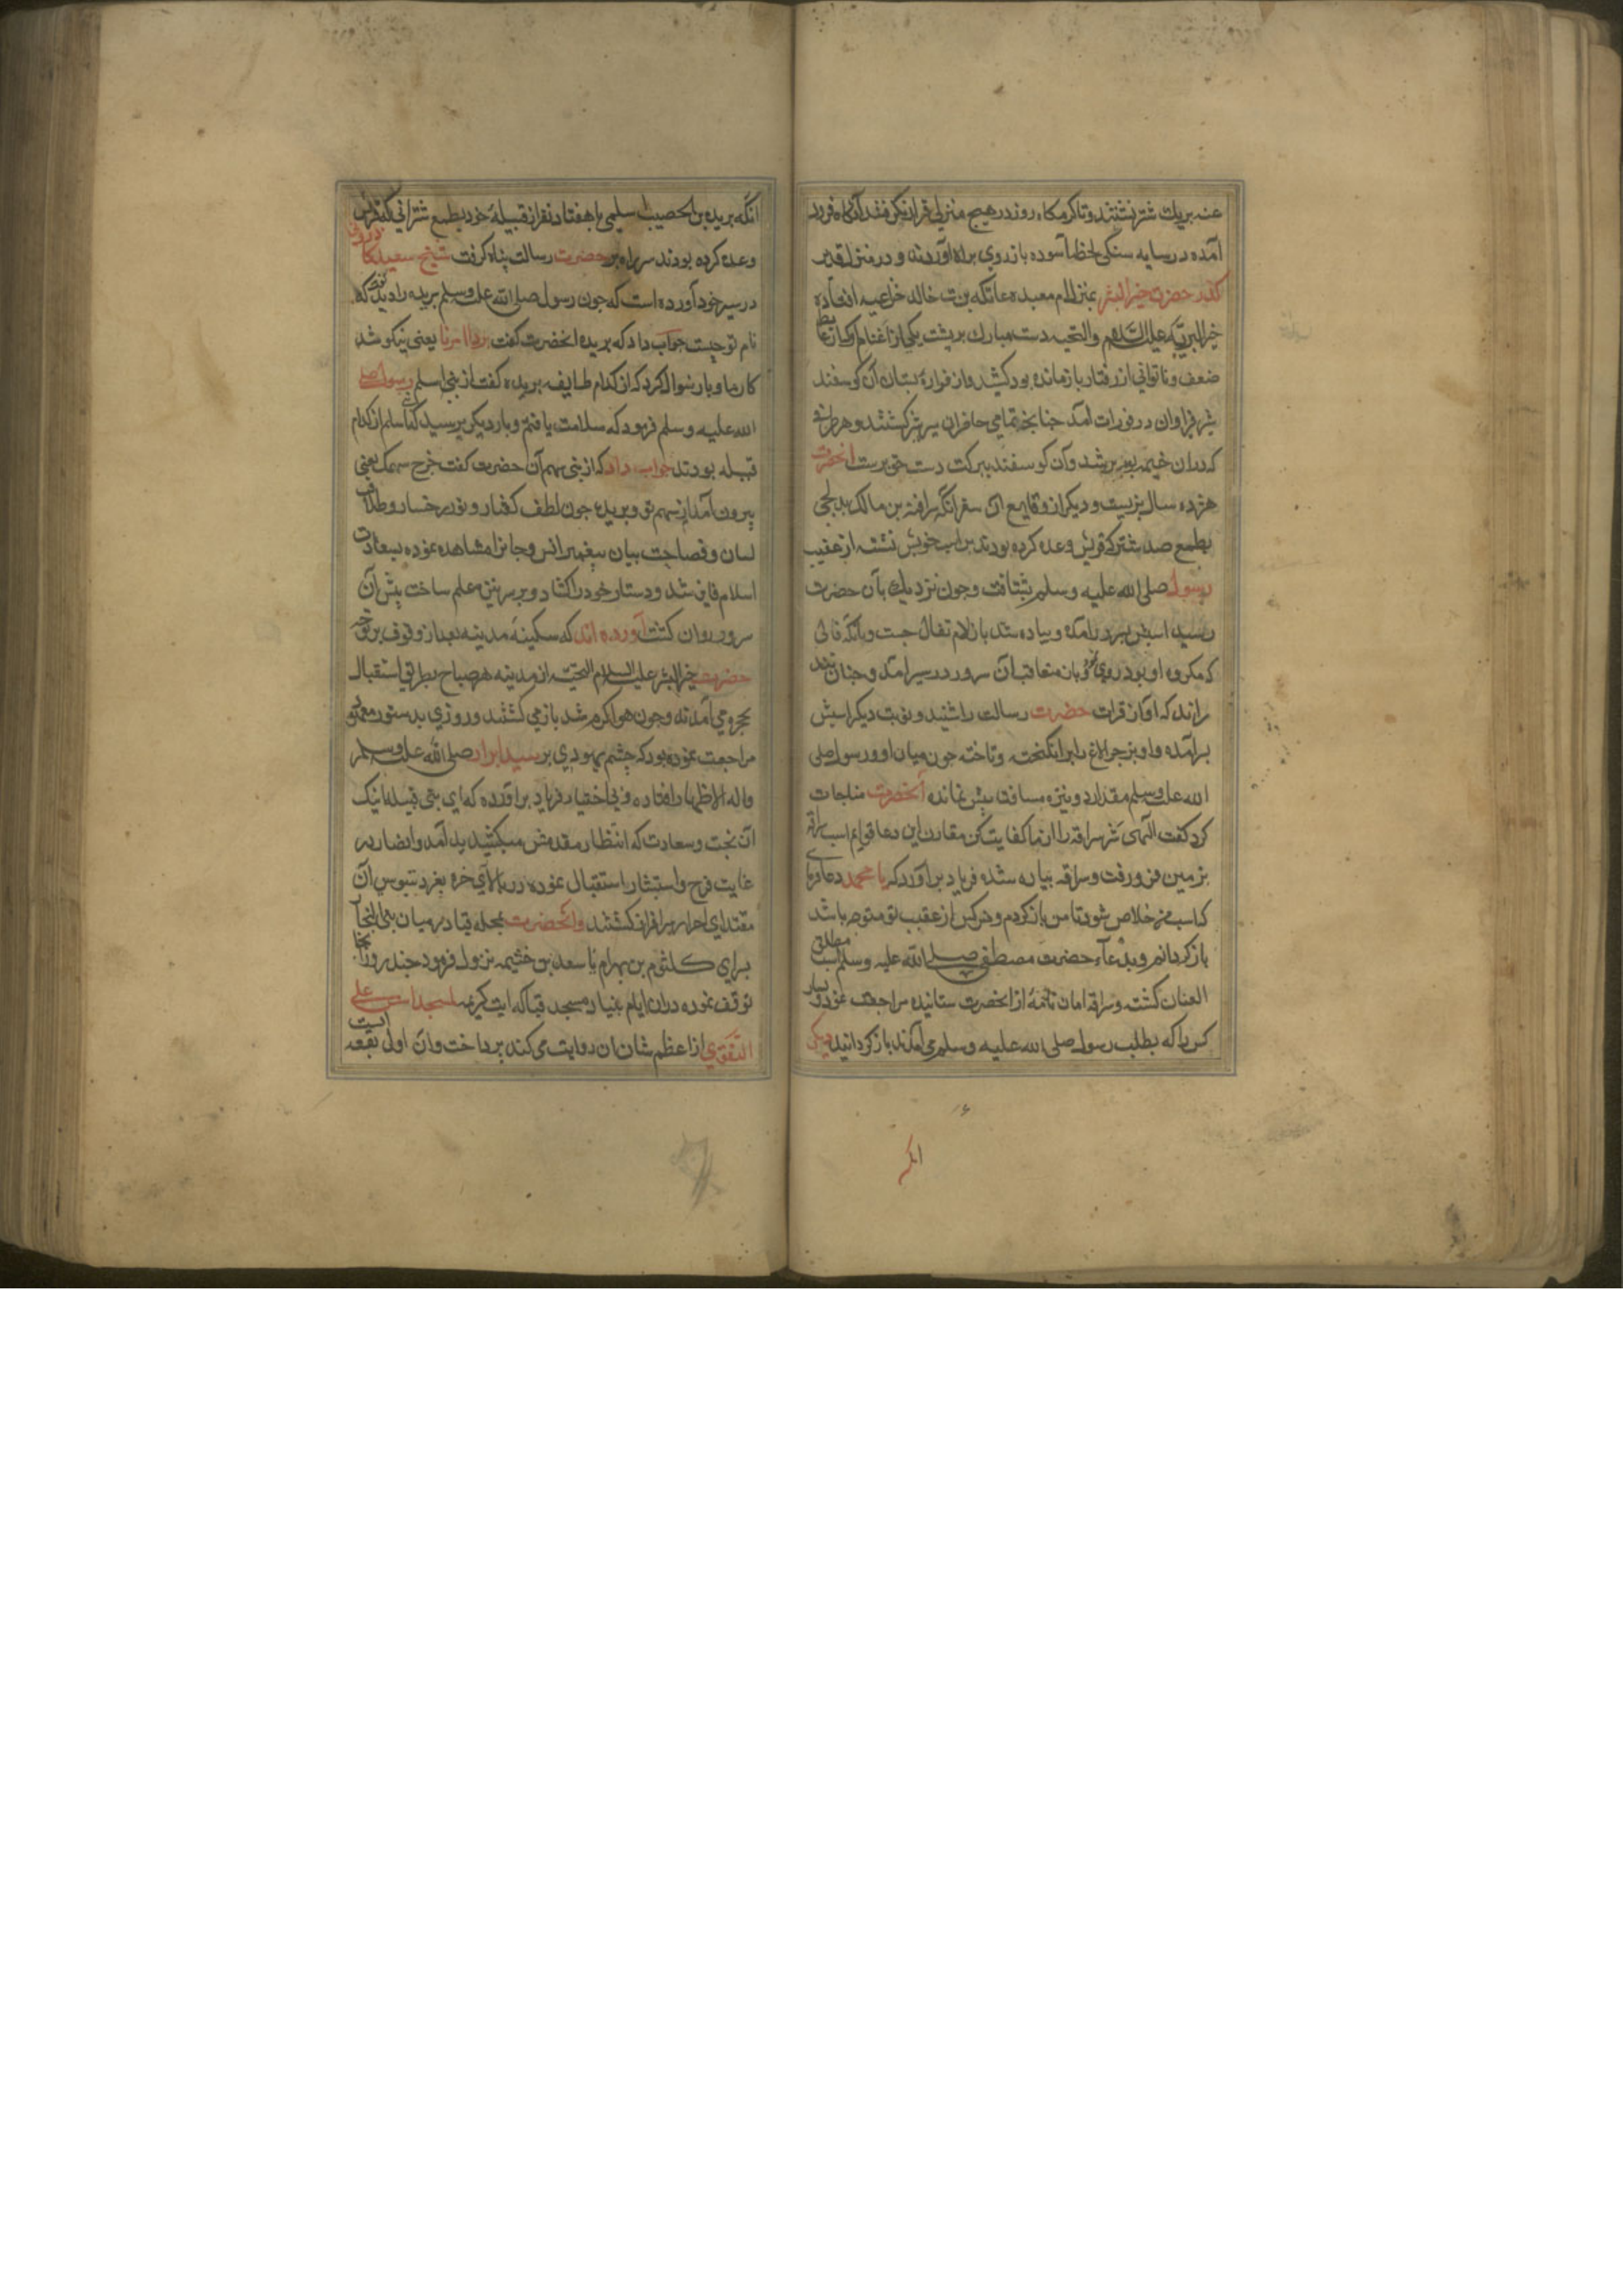 عنه بریك شتر نشستند و تا گرمگاه روز در هیچ منزلی قرار نگرفتند آنگاه فرود
آمده در سایه سنگی لحظهٔ آسوده باز روی براه آوردند و در منزل قدید
گذر حضرت خیر البشر بمنزل ام معبده عاتکه بنت خالد خزاعیه افتاده
خیر البریّه علیه السّلام والتحیه دست مبارك بر پشت یکی از اغنام او که از غایت
ضعف و ناتوانی از رفتار باز مانده بود کشید و از فوارهٔ پستان آن کوسفند
شیر فراوان در فوران آمد چنانچه تمامی حاضران سیر شیر گشتند و هر ظرفی
که دران خیمه بود پر شد و آن کوسفند ببرکت دست حق پرست آنحضرت
هژده سال بزیست و دیگر از وقایع آن سفر آنکه سراقة بن مالك مدلجی
بطمع صد شتر که قریش وعده کرده بودند بر اسب خویش نشسته از عقب
رسول صلی الله علیه وسلم بشتافت و چون نزدیك بآن حضرت
رسید اسبش بسر درآمد و پیاده شد بازلام تفال جست و با آنکه فالی
که مکروه او بود روی نمود بازمتعاقب آن سرور در سیر آمد و چنان تند
راند که آواز قرات حضرت رسالت را شنید و نوبت دیگر اسبش
برآمده و او بزجر الاغ را برانگیخت و تاخته چون میان او و رسول صلی
الله علیه وسلم مقدار دو نیزه مسافت بیش نماند آنحضرت مناجات
کرد گفت الهی شر سراقه را از ما کفایت کن مقارن این دعا قوایم اسب سراقه
بزمین فرو رفت و سراقه پیاده شده فریاد برآورد که یا محمد دعا فرمای
که اسب من خلاص شود تا من باز گردم و هر کس از عقب تو متوجه باشد
باز گردانم و بدعاء حضرت مصطفی صلی الله علیه وسلم اسب مطلق
العنان گشته و سراقه امان نامهٔ از آنحضرت ستانیده مراجعت نمود و بسیار
کس را که بطلب رسول صلی الله علیه وسلم می آمدند باز گردانید دیگر
انکه
انکه بریده بن الحصیب اسلمی با هفتاد نفر از قبیلهٔ خود بطمع شترانی که قریش
وعده کرده بودند سر راه بر حضرت رسالت پناه گرفت شیخ سعید کازرونی
در سیر خود آورده است که چون رسول صلی الله علیه وسلم بریده را دید گفت که
نام تو چیست جواب داد که بریده آنحضرت گفت برد امرنا یعنی نیکو شد
کار ما و بار سوال کرد که از کدام طایفه بریده گفت از بنی اسلم رسول صلی
الله علیه وسلم فرمود که سلامت یافتم و بار دیگر پرسید که از بنی اسلم از کدام
قبیله بودند جواب داد که از بنی سهم آن حضرت گفت خرج سهمك یعنی
بیرون آمد از سهم تو و بریده چون لطف گفتار و نور رخسار و طلاقت
لسان و فصاحت بیان پیغمبر انس و جانرا مشاهده نموده بسعادت
اسلام فایز شد و دستار خود را گشاد و بر سر نیزه علم ساخت پیش آن
سرور روان گشت آورده اند که سکینهٔ مدینه بعد از وقوف بر توجه
حضرت خیر البشر علیه السلام والتحیّه از مدینه هر صباح بطریق استقبال
بحره می آمدند و چون هوا گرم شد باز می گشتند و روزی بدستور معهود
مراجعت نموده بود که چشم یهودی بر سید ابرار صلی الله علیه وسلم
و اله الاطهار افتاده و بی اختیار فریاد برآورده که ای بنی قیله اینك
آن بخت و سعادت که انتظار مقدمش میکشید بد آمد و انصار در
غایت فرح و استبشار استقبال نموده در بالای حره بعز دستبوس آن
مقتدای احرار سرافراز گشتند و آنحضرت بمحله قبا در میان بنی النجار
برای کلثوم بن بهرام یا سعد بن خثیمه نزول فرمود چند روز آنجا
توقف نموده دران ایام بنیاد مسجد قبا که ایت کریمه لمسجد اسس علی
التقوی از اعظم شان آن روایت می کند پرداخت و آن اول بقعه ایست